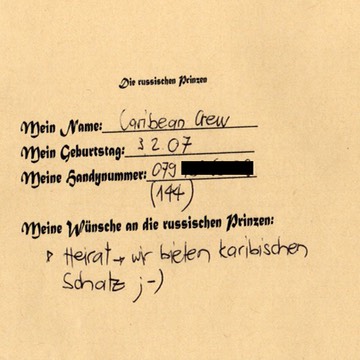 Die russischen Prinzen
Mein Name: Caribean Crew
Mein Geburtstag: 3 2. 07
Meine Handynummer: 079
(144)
Meine Wünsche an die russischen Prinzen:
Heirat → wir bieten karibischen
Schatz ;-)